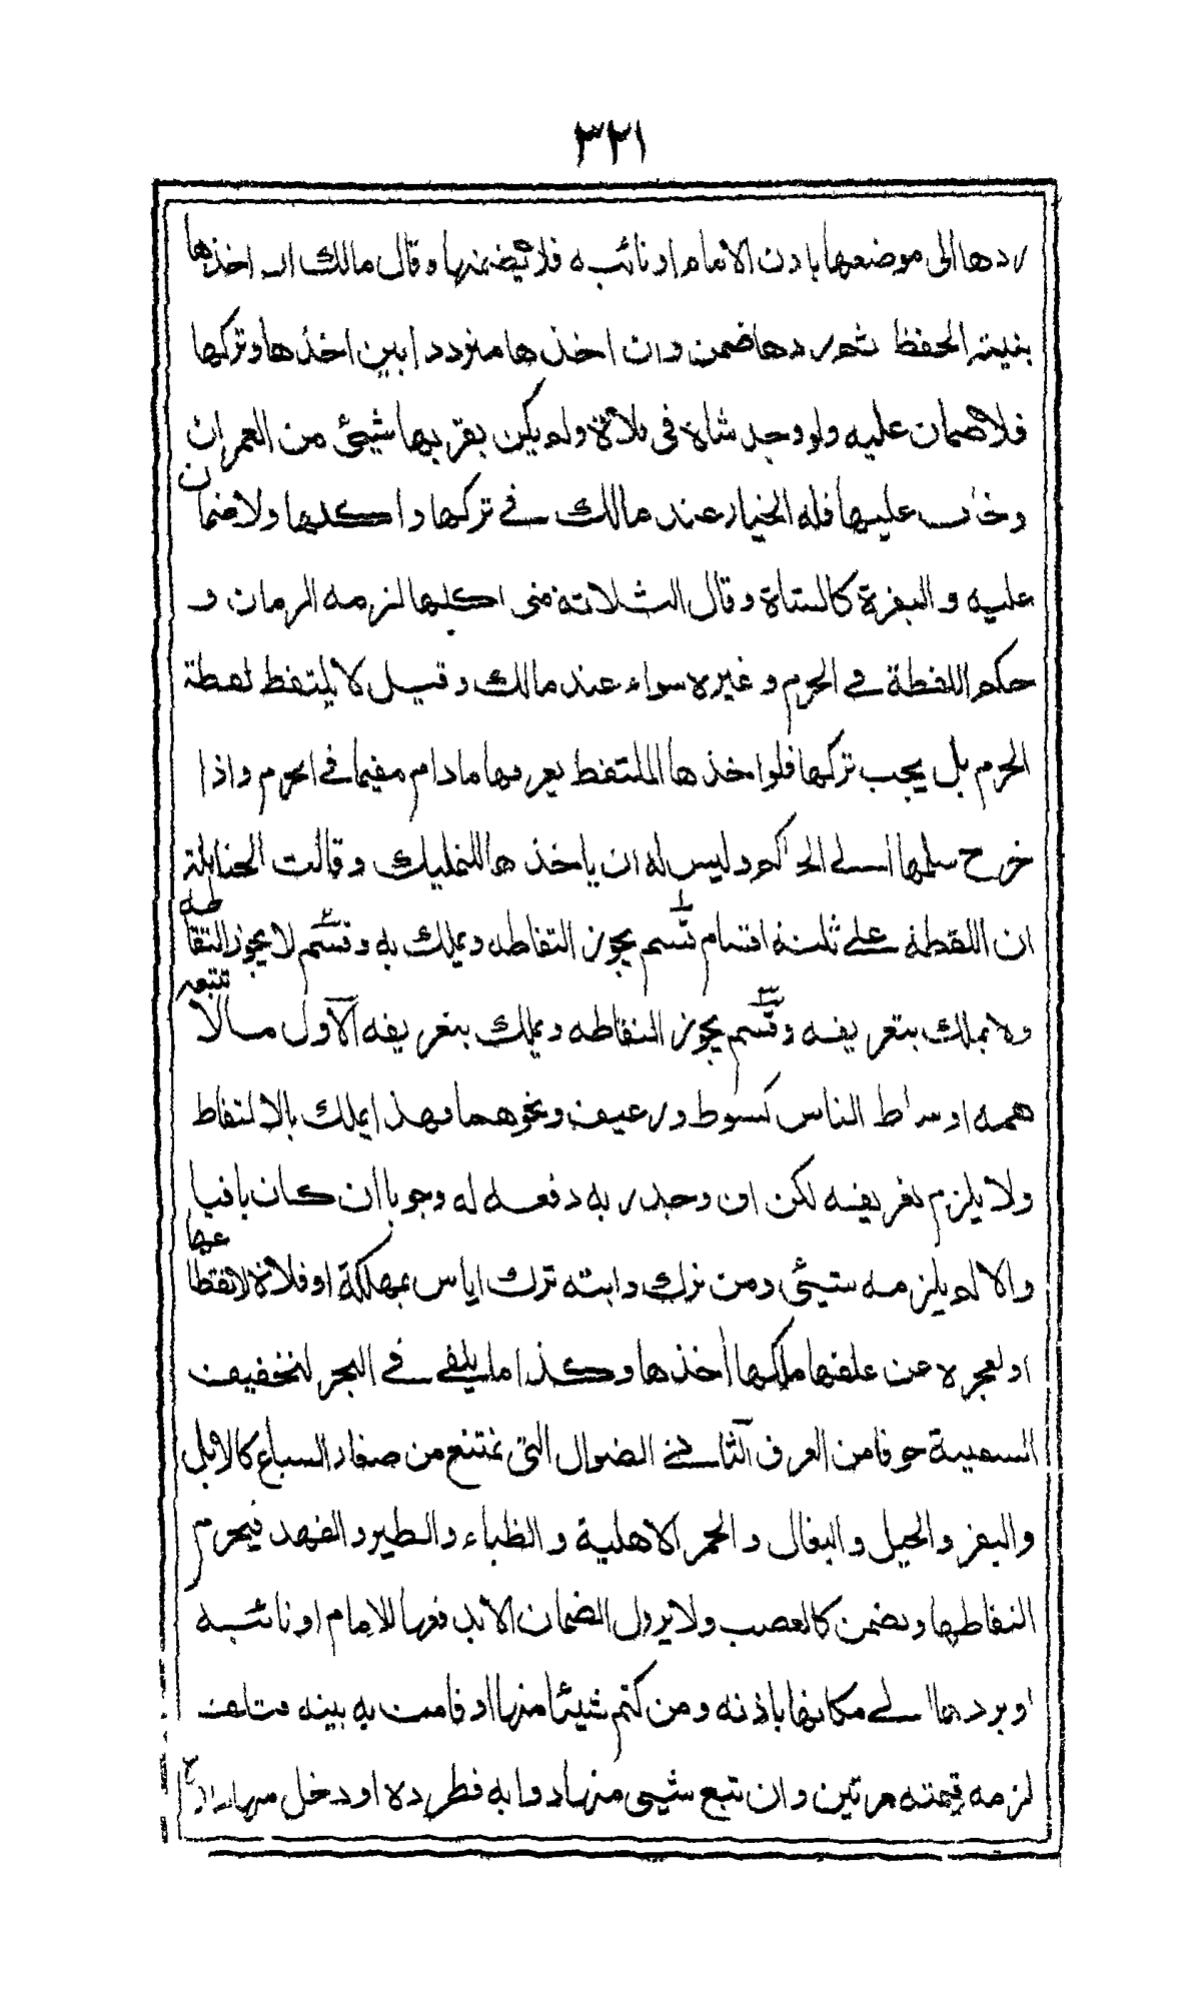 ٣٢١
ردها الى موضعها باذن الامام او نائبه فلا يضمنها وقال مالك ان اخذها
بنية الحفظ ثم ردها ضمن وان اخذها مترددا بين اخذها وتركها
فلا ضمان عليه ولو وجد شاة فى فلاة ولم يكن بقربها شيئ من العمران
وخاف عليها فله الخيار عند مالك في تركها واكلها ولا ضمان
عليه والبقرة كالشاة وقال الثلاثة متى اكلها لزمه الرمان و
حكم اللقطة في الحرم وغيره سواء عند مالك وقيل لا يلتقط لقطة
الحرم بل يجب تركها فلو اخذها الملتقط يعرفها مادام مقيما في الحرم واذا
خرج سلمها الى الحاكم وليس له ان ياخذها للتمليك وقالت الحنابلة
ان اللقطة على ثلثة اقسام قسم يجوز التقاطه ويملك به وقسم لا يجوز التقاطه
ولا يملك بتعريفه وقسم يجوز التقاطه ويملك بتعريفه الآول مالا تتبعه
همه اوساط الناس كسوط ورغيف ونحوهما فهذا يملك بالالتقاط
ولا يلزم تعريفه لكن ان وجد ربه دفعه له وجوبا ان كان باقيا
والا لم يلزمه شيئ ومن ترك دابته ترك اياس بمهلكة او فلاة لانقطاعها
او لعجزه عن علفها ملكها أخذها وكذا ما يلقى في البحر لتخفيف
السفينة خوفا من الغرق الثاني الضوال التى تمتنع من صغار السباع كالابل
والبقر والخيل والبغال والحمر الاهلية والظباء والطير والفهد فيحرم
التقاطها وتضمن كالغصب ولا يزول الضمان الا بدفعها للامام او نائبه
او بردها الى مكانها باذنه ومن كتم شيئا منها او قامت به بينه فتلف
لزمه قيمته مرتين وان تبع شيئ منها دوابه فطرده او دخل